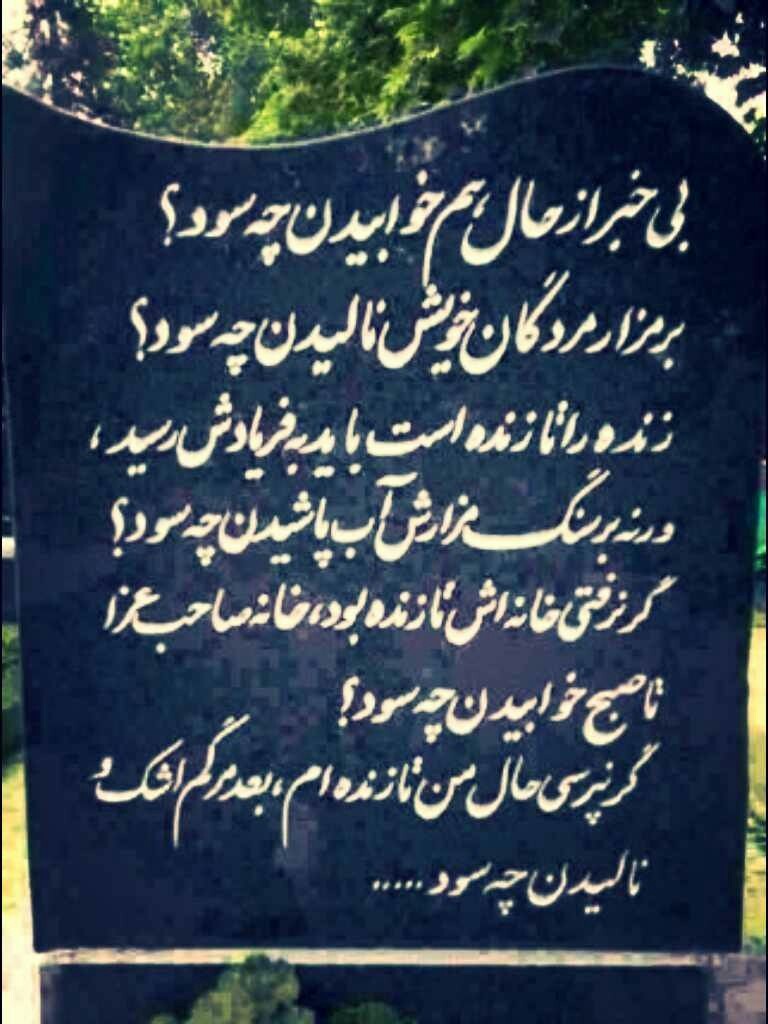 بی خبر از حال هم خوابیدن چه سود؟
بر مزار مردگان خویش نالیدن چه سود؟
زنده را تا زنده است باید به فریادش رسید،
ورنه بر سنگ مزارش آب پاشیدن چه سود؟
گر نرفتی خانه اش تا زنده بود، خانه صاحب عزا
تا صبح خوابیدن چه سود؟
گر نپرسی حال من تا زنده ام، بعد مرگم اشک و
نالیدن چه سود.....